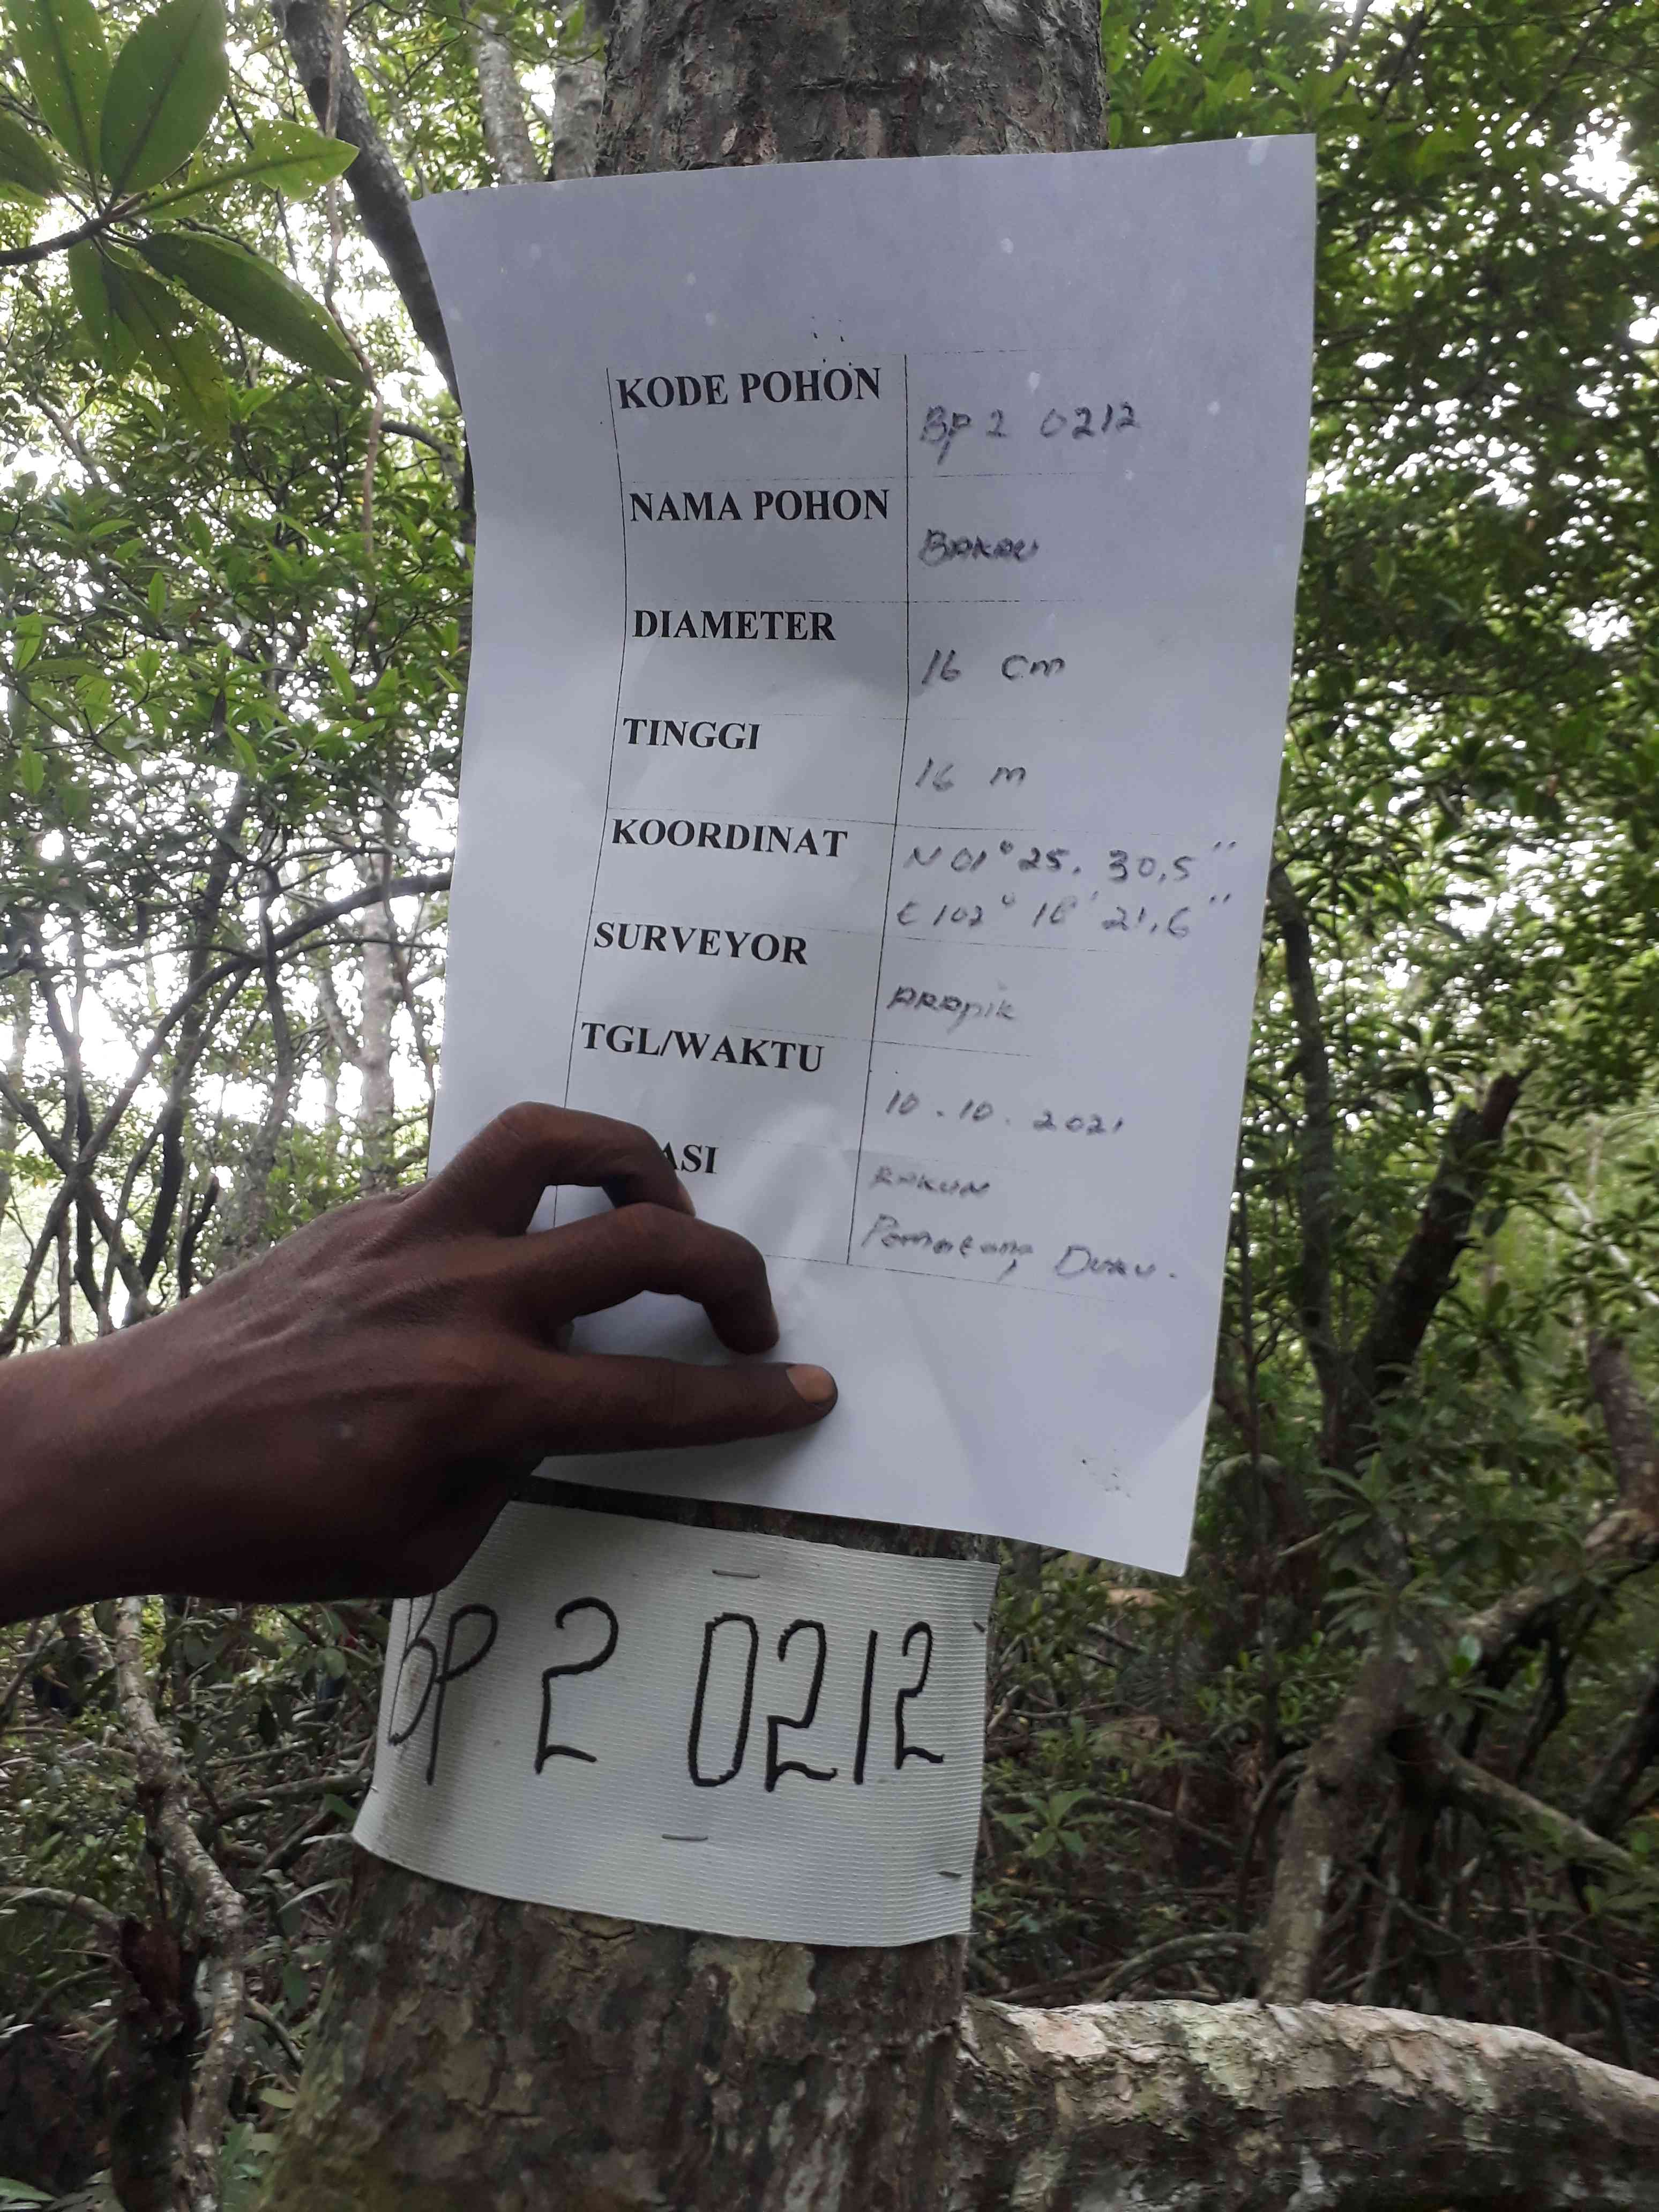 KODE POHON
BP 2 0212
NAMA POHON
BAKAU
DIAMETER
16 Cm
TINGGI
16 m
KOORDINAT
N 01° 25. 30,5"
E 102° 18' 21,6"
SURVEYOR
ARApik
TGL/WAKTU
10.10.2021
ASI
Pematang Duku.
BP 2 0212